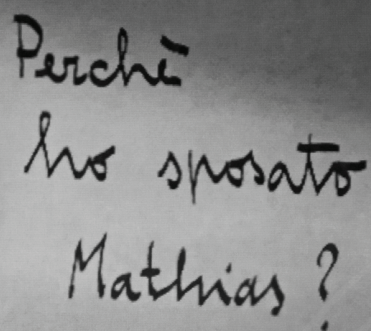 Perchè
ho sposato
Mathias?